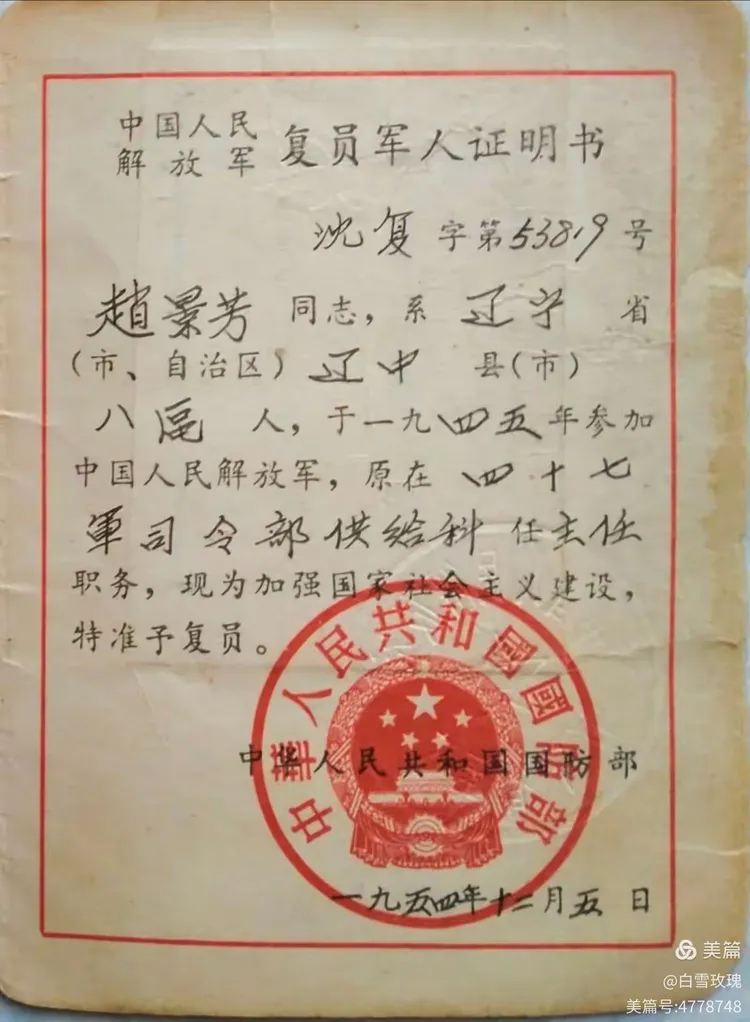 中国人民
解放军 复员军人证明书
沈复字第53819号
趙景芳同志，系辽宁省
(市、自治区)辽中县(市)
八區人，于一九四五年参加
中国人民解放军，原在四十七
軍司令部供给科任主任
职务，现为加强国家社会主义建设，
特准予复员。
中华人民共和国国防部
中華人民共和國國防部
一九五四年十二月五日
美篇
@白雪玫瑰
美篇号:4778748